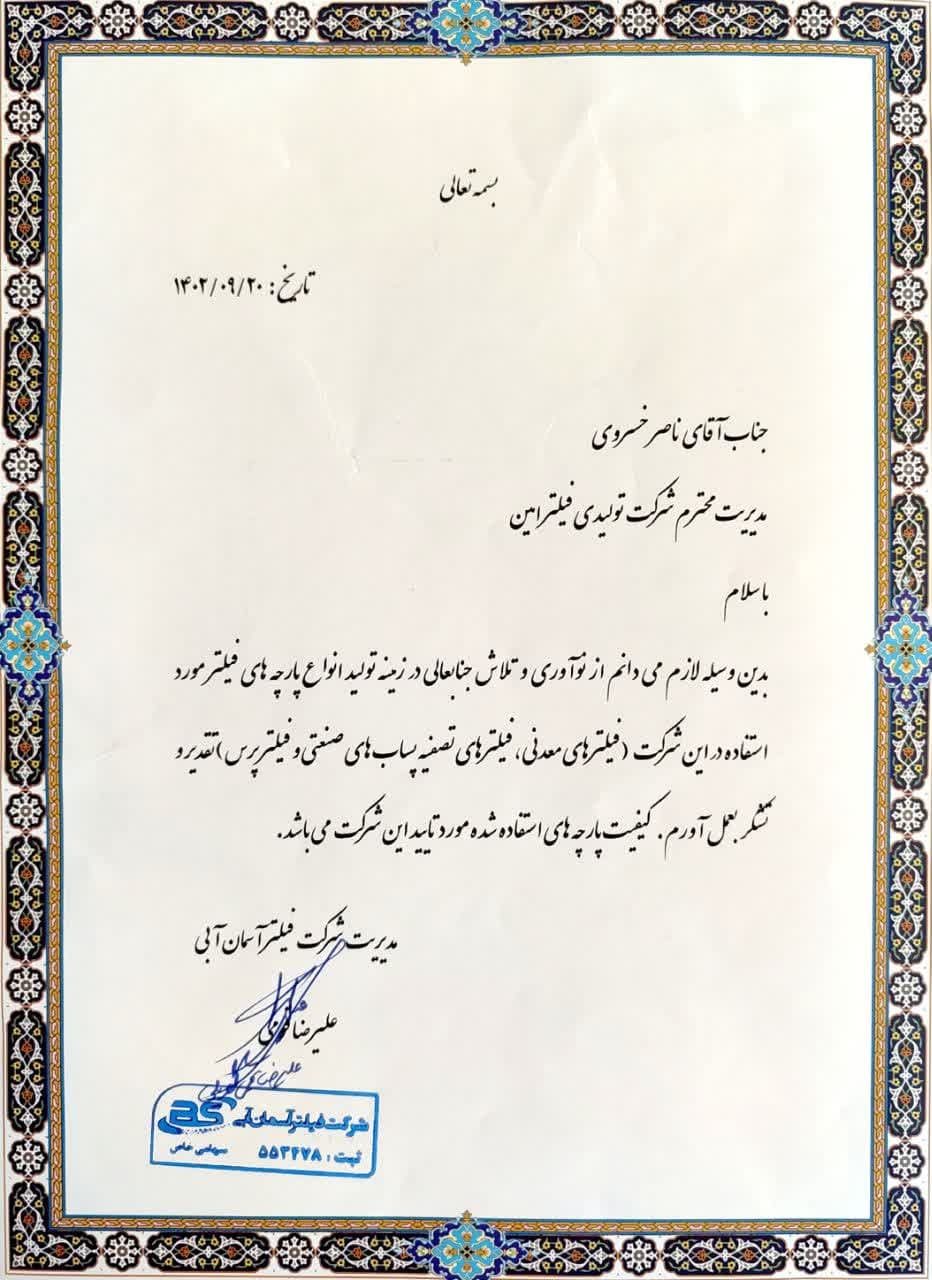 بسمه تعالی
تاریخ: ۱۴۰۲/۰۹/۲۰
جناب آقای ناصر خسروی
مدیریت محترم شرکت تولیدی فیلتر امین
با سلام
بدین وسیله لازم می دانم از نوآوری و تلاش جنابعالی در زمینه تولید انواع پارچه های فیلتر مورد
استفاده در این شرکت (فیلترهای معدنی، فیلترهای تصفیه پساب های صنعتی و فیلتر پرس) تقدیر و
تشکر بعمل آورم. کیفیت پارچه های استفاده شده مورد تایید این شرکت می باشد.
مدیریت شرکت فیلتر آسمان آبی
علیرضا
علیرضا
شرکت فیلتر آسمان آبی
ثبت : ۵۵۳۴۷۸ سهامی خاص